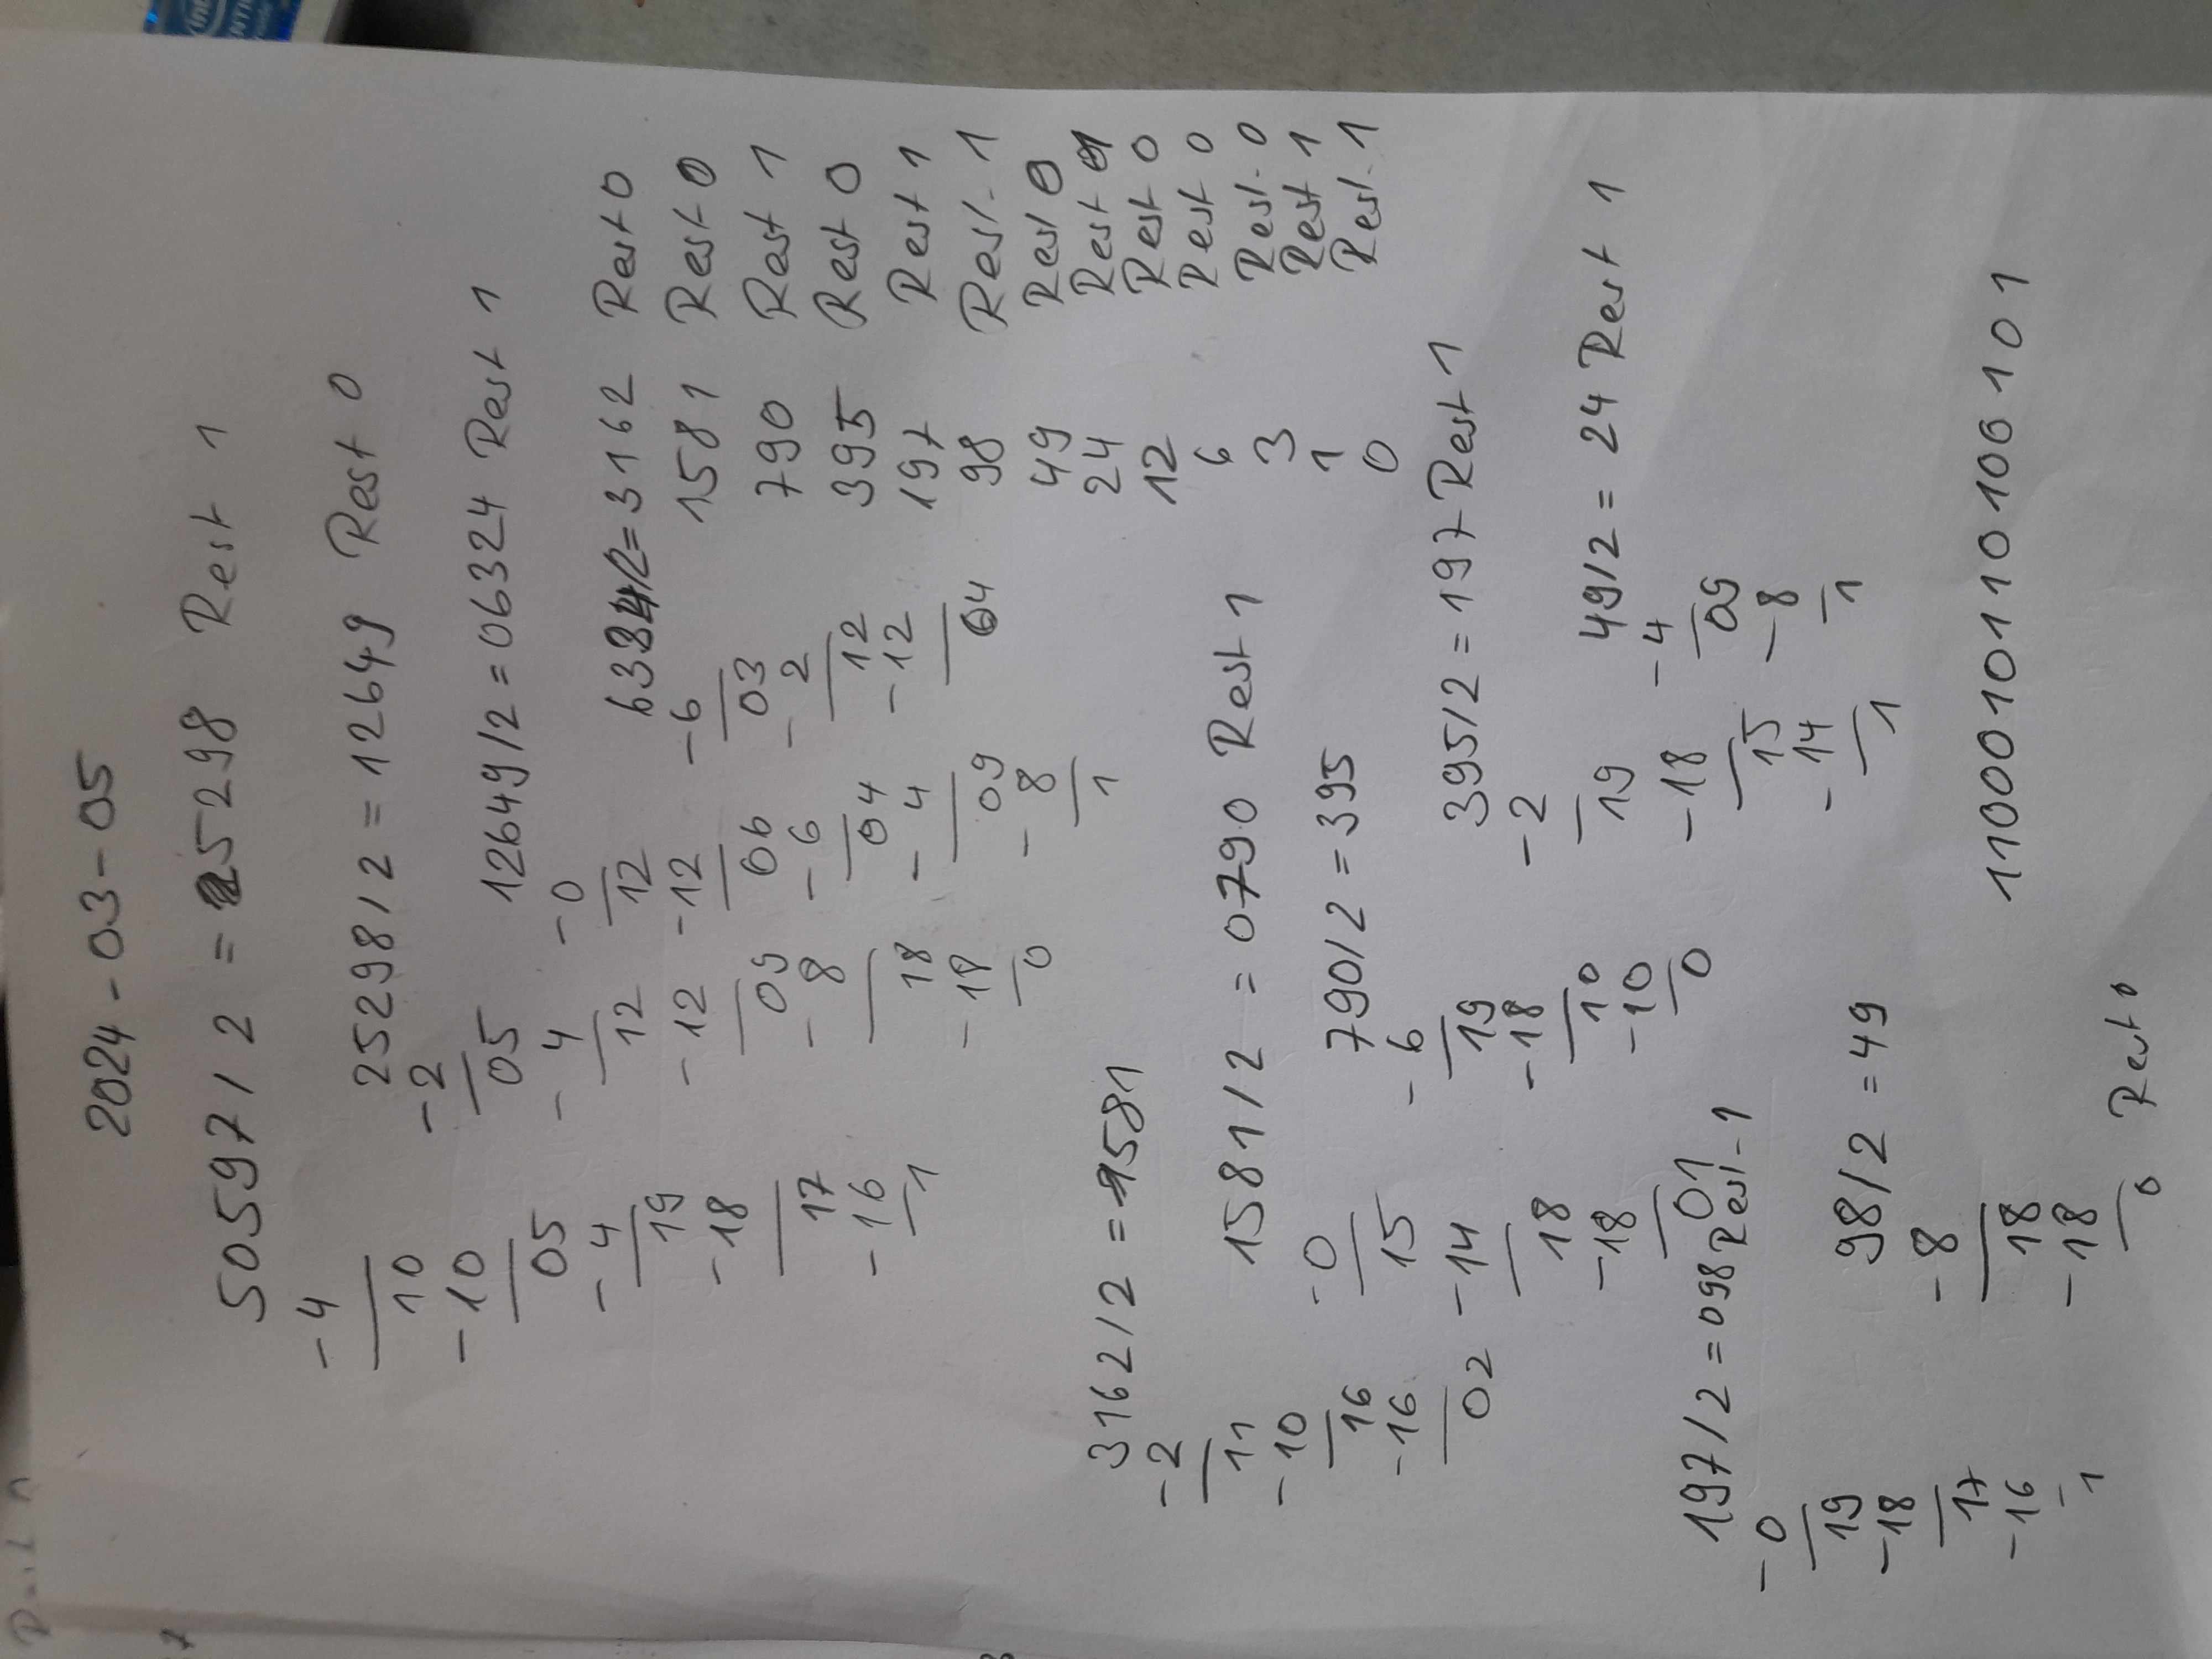 2024-03-05
50597/2 = 25298 Rest 1
-4
10
-10
05
-4
19
-18
17
-16
1
25298/2 = 12649 Rest 0
-2
05
-4
12
-12
09
-8
18
-18
0
12649/2 = 06324 Rest 1
-0
12
-12
06
-6
04
-4
09
-8
1
6324/2 = 3162 Rest 0
-6
03
-2
12
-12
04
1581 Rest 0
790 Rest 1
395 Rest 0
197 Rest 1
98 Rest 1
49 Rest 0
24 Rest 1
12 Rest 0
6 Rest 0
3 Rest 0
1 Rest 1
0 Rest 1
3162/2 = 1581
-2
11
-10
16
-16
02
1581/2 = 0790 Rest 1
-0
15
-14
18
-18
01
790/2 = 395
-6
19
-18
10
-10
0
395/2 = 197 Rest 1
-2
19
-18
15
-14
1
197/2 = 098 Rest 1
-0
19
-18
17
-16
1
98/2 = 49
-8
18
-18
0 Rest 0
49/2 = 24 Rest 1
-4
09
-8
1
1100010110100101